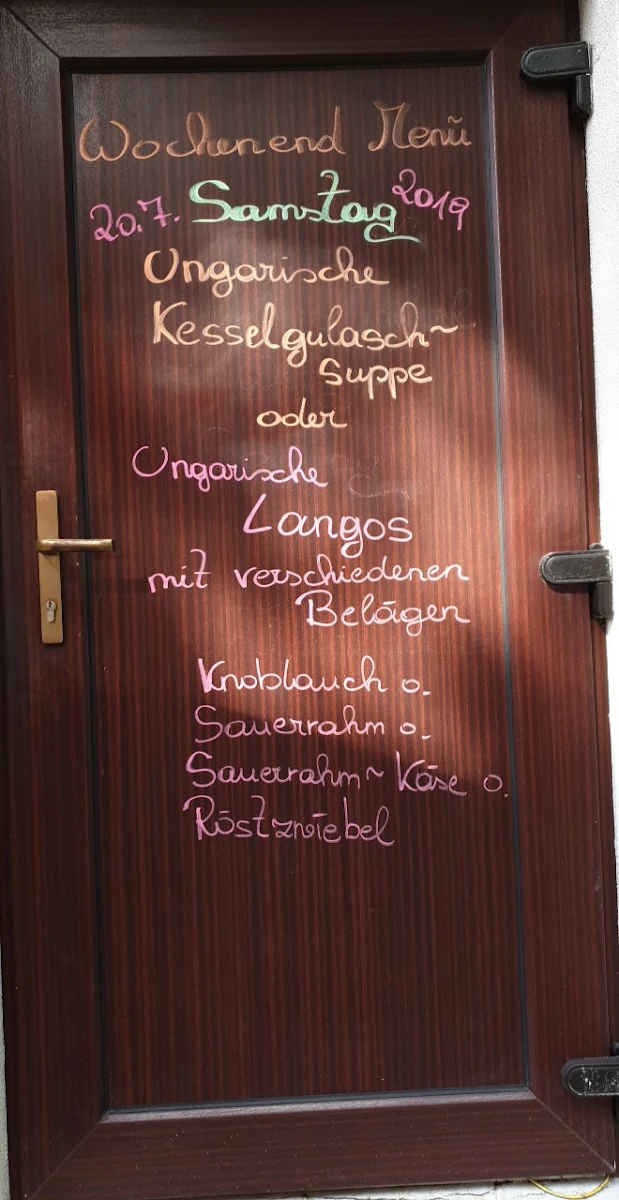 Wochenend Menü
20.7. Samstag 2019
Ungarische
Kesselgulasch~
suppe
oder
Ungarische
Langos
mit verschiedenen
Belägen
Knoblauch o.
Sauerrahm o.
Sauerrahm~ Käse o.
Röstzwiebel